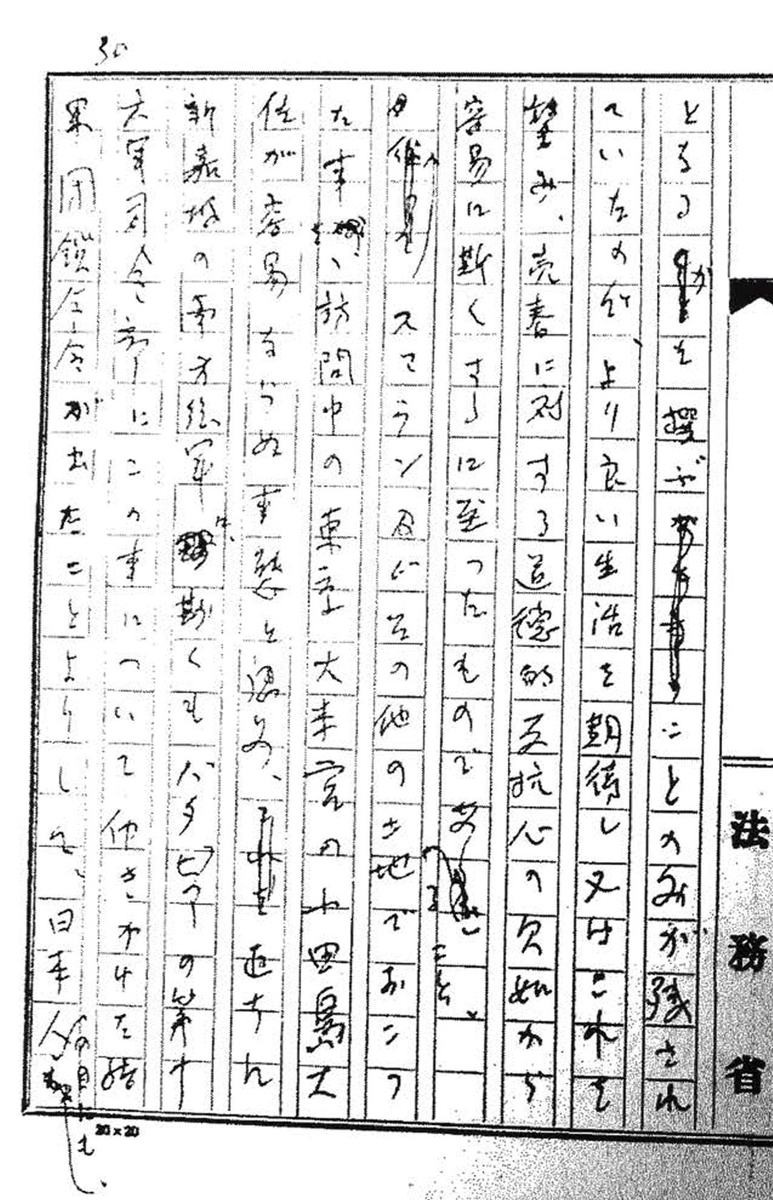 30
となるかを撰ぶことのみが残され
ていたのが、より良い生活を期待し又はこれを
望み、売春に対する道徳的反抗心の欠如から
容易に斯くするに至ったものであること、
スマラン及びその他の土地でおこっ
た事を、訪問中の東京大本営の小田島大
佐が容易ならぬ事態と認め、直ちに
新嘉坡の南方総軍は、斯くもバタビヤの第十
六軍司令部にこの事について働きかけた結
果閉鎖命令が出たことよりして、日本人の目にも
法務省
20×20